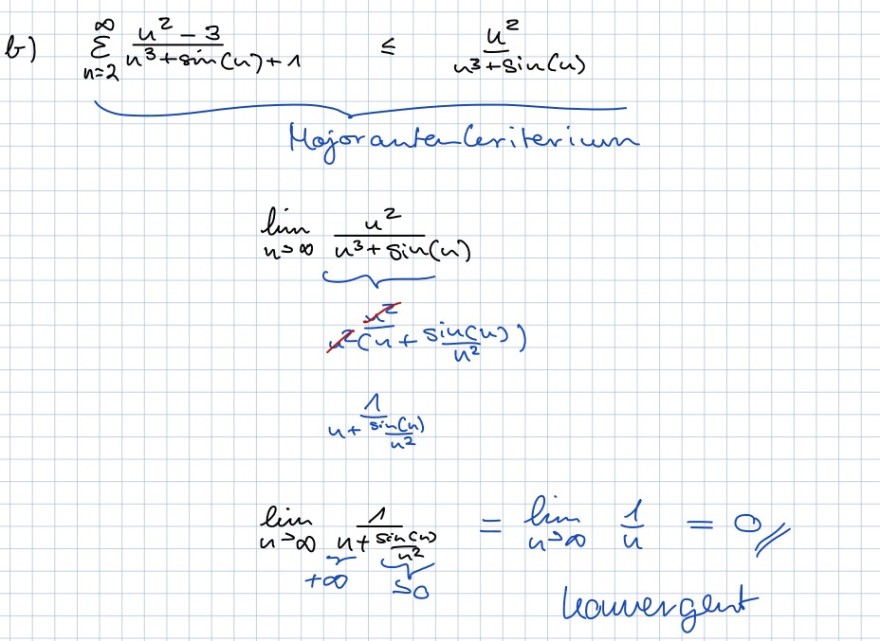 b) ∞ Σ n=2 (n² - 3)/(n³ + sin(n) + 1) ≤ n²/(n³ + sin(n))
Majorantenkriterium
lim n→∞ n²/(n³ + sin(n))
n²/(n²(n + sin(n)/n²))
1/(n + sin(n)/n²)
lim n→∞ 1/(n + sin(n)/n²) = lim n→∞ 1/n = 0
+∞ →0
konvergent